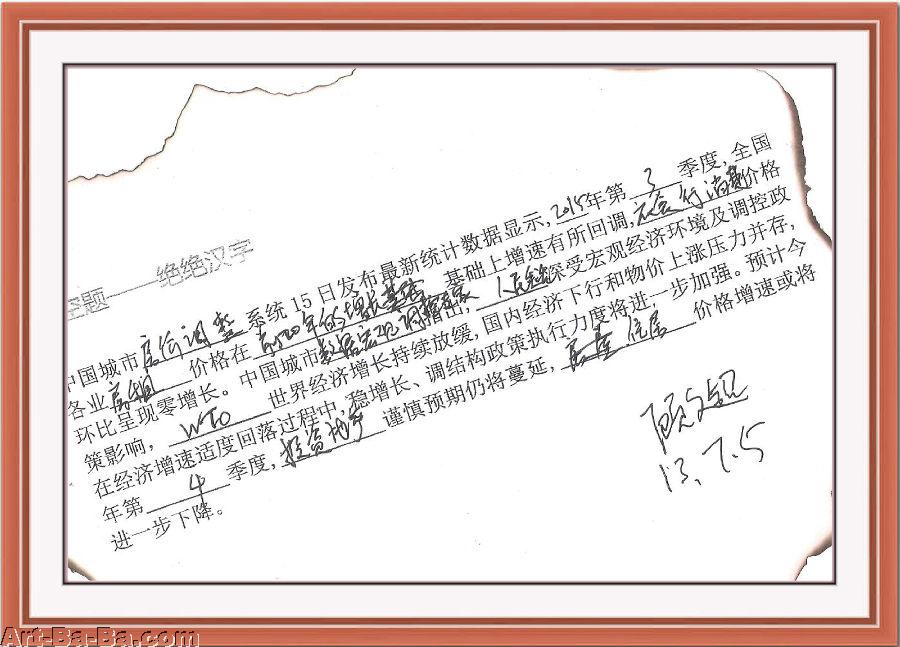 空题——绝绝汉字
中国城市房价调整系统15日发布最新统计数据显示，2015年第3季度，全国
各业房租价格在前20年的增长基础上增速有所回调，消费价格
环比呈现零增长。中国城市数据宏观调出，人民深受宏观经济环境及调控政
策影响，WTO世界经济增长持续放缓，国内经济下行和物价上涨压力并存，
在经济增速适度回落过程中，稳增长、调结构政策执行力度将进一步加强。预计今
年第4季度，投资谨慎预期仍将蔓延，住居价格增速或将
进一步下降。
13.7.5
Art-Ba-Ba.com